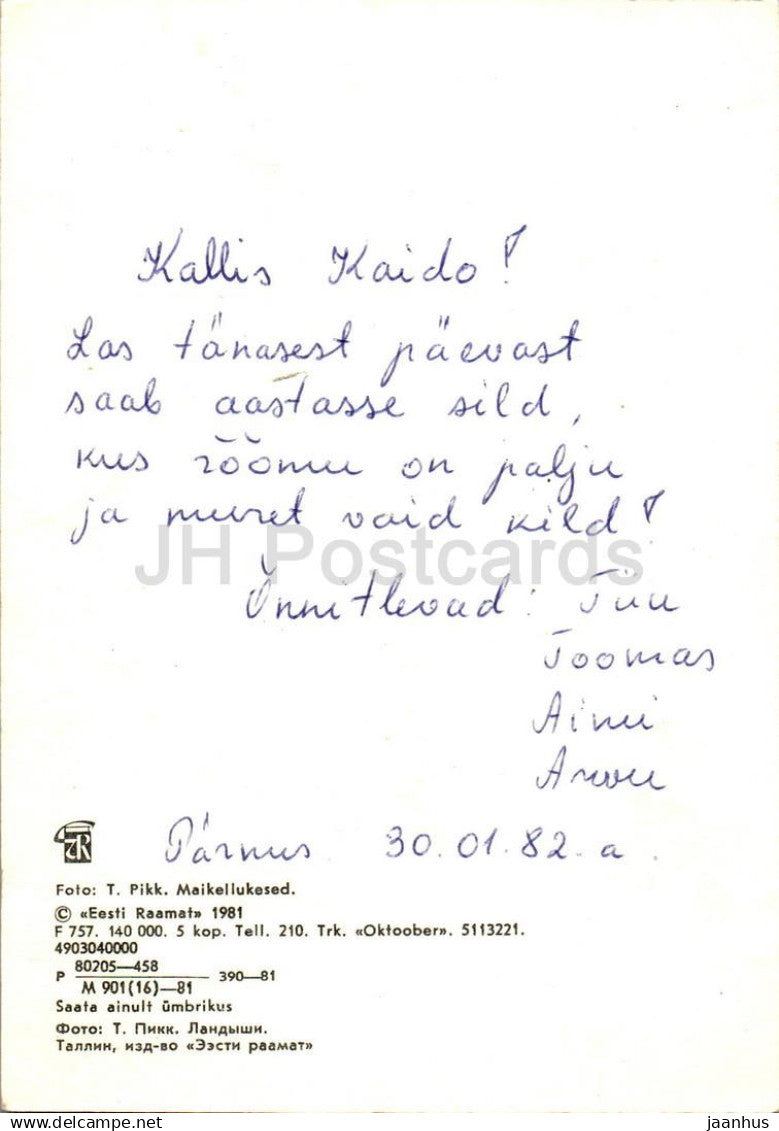 Kallis Kaido!
Las tänasest päevast
saab aastasse sild,
kus rõõmu on palju
ja muret vaid kild!
JH Postcards
Õnnitlevad: Tiiu
Toomas
Aini
Arvu
Pärnus 30.01.82.a.
Foto: T. Pikk. Maikellukesed.
© «Eesti Raamat» 1981
F 757. 140 000. 5 kop. Tell. 210. Trk. «Oktoober». 5113221.
4903040000
P 80205—458
M 901(16)—81 390—81
Saata ainult ümbrikus
Фото: Т. Пикк. Ландыши.
Таллин, изд-во «Ээсти раамат»
jaanhus